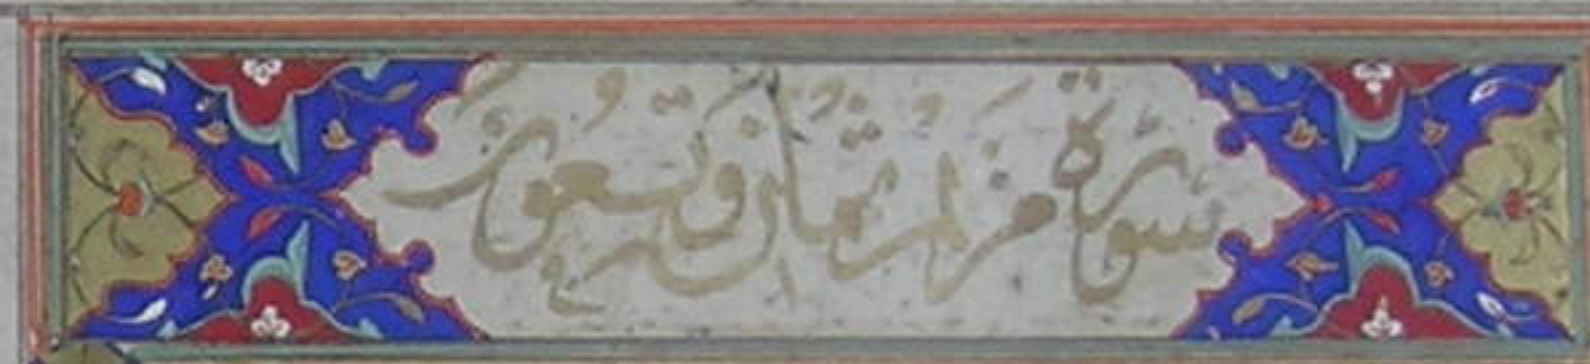 سورة مريم ثمان وتسعون